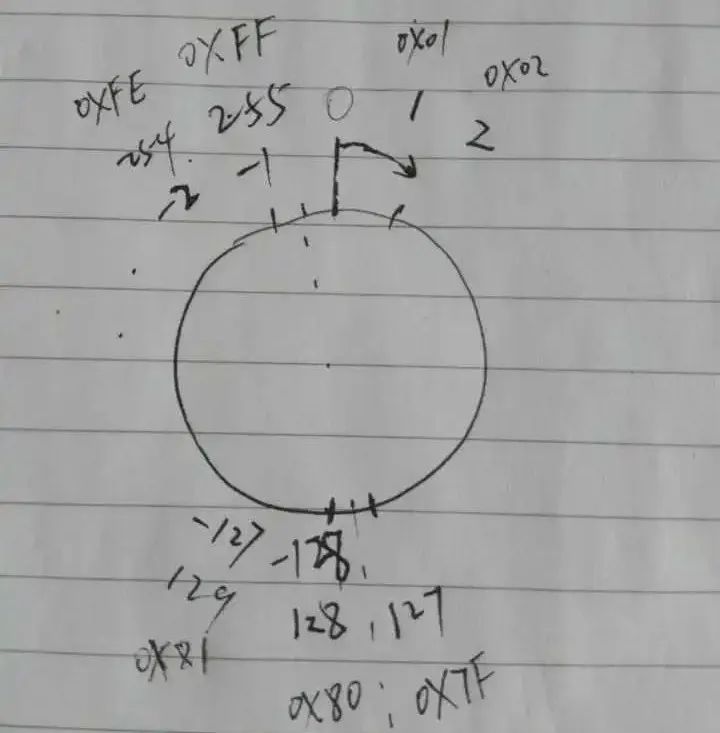 0XFF 0X01
0XFE 255 0 1 0X02
254. -1 2
-2
-127 -128,
129 128, 127
0X81 0X80; 0X7F